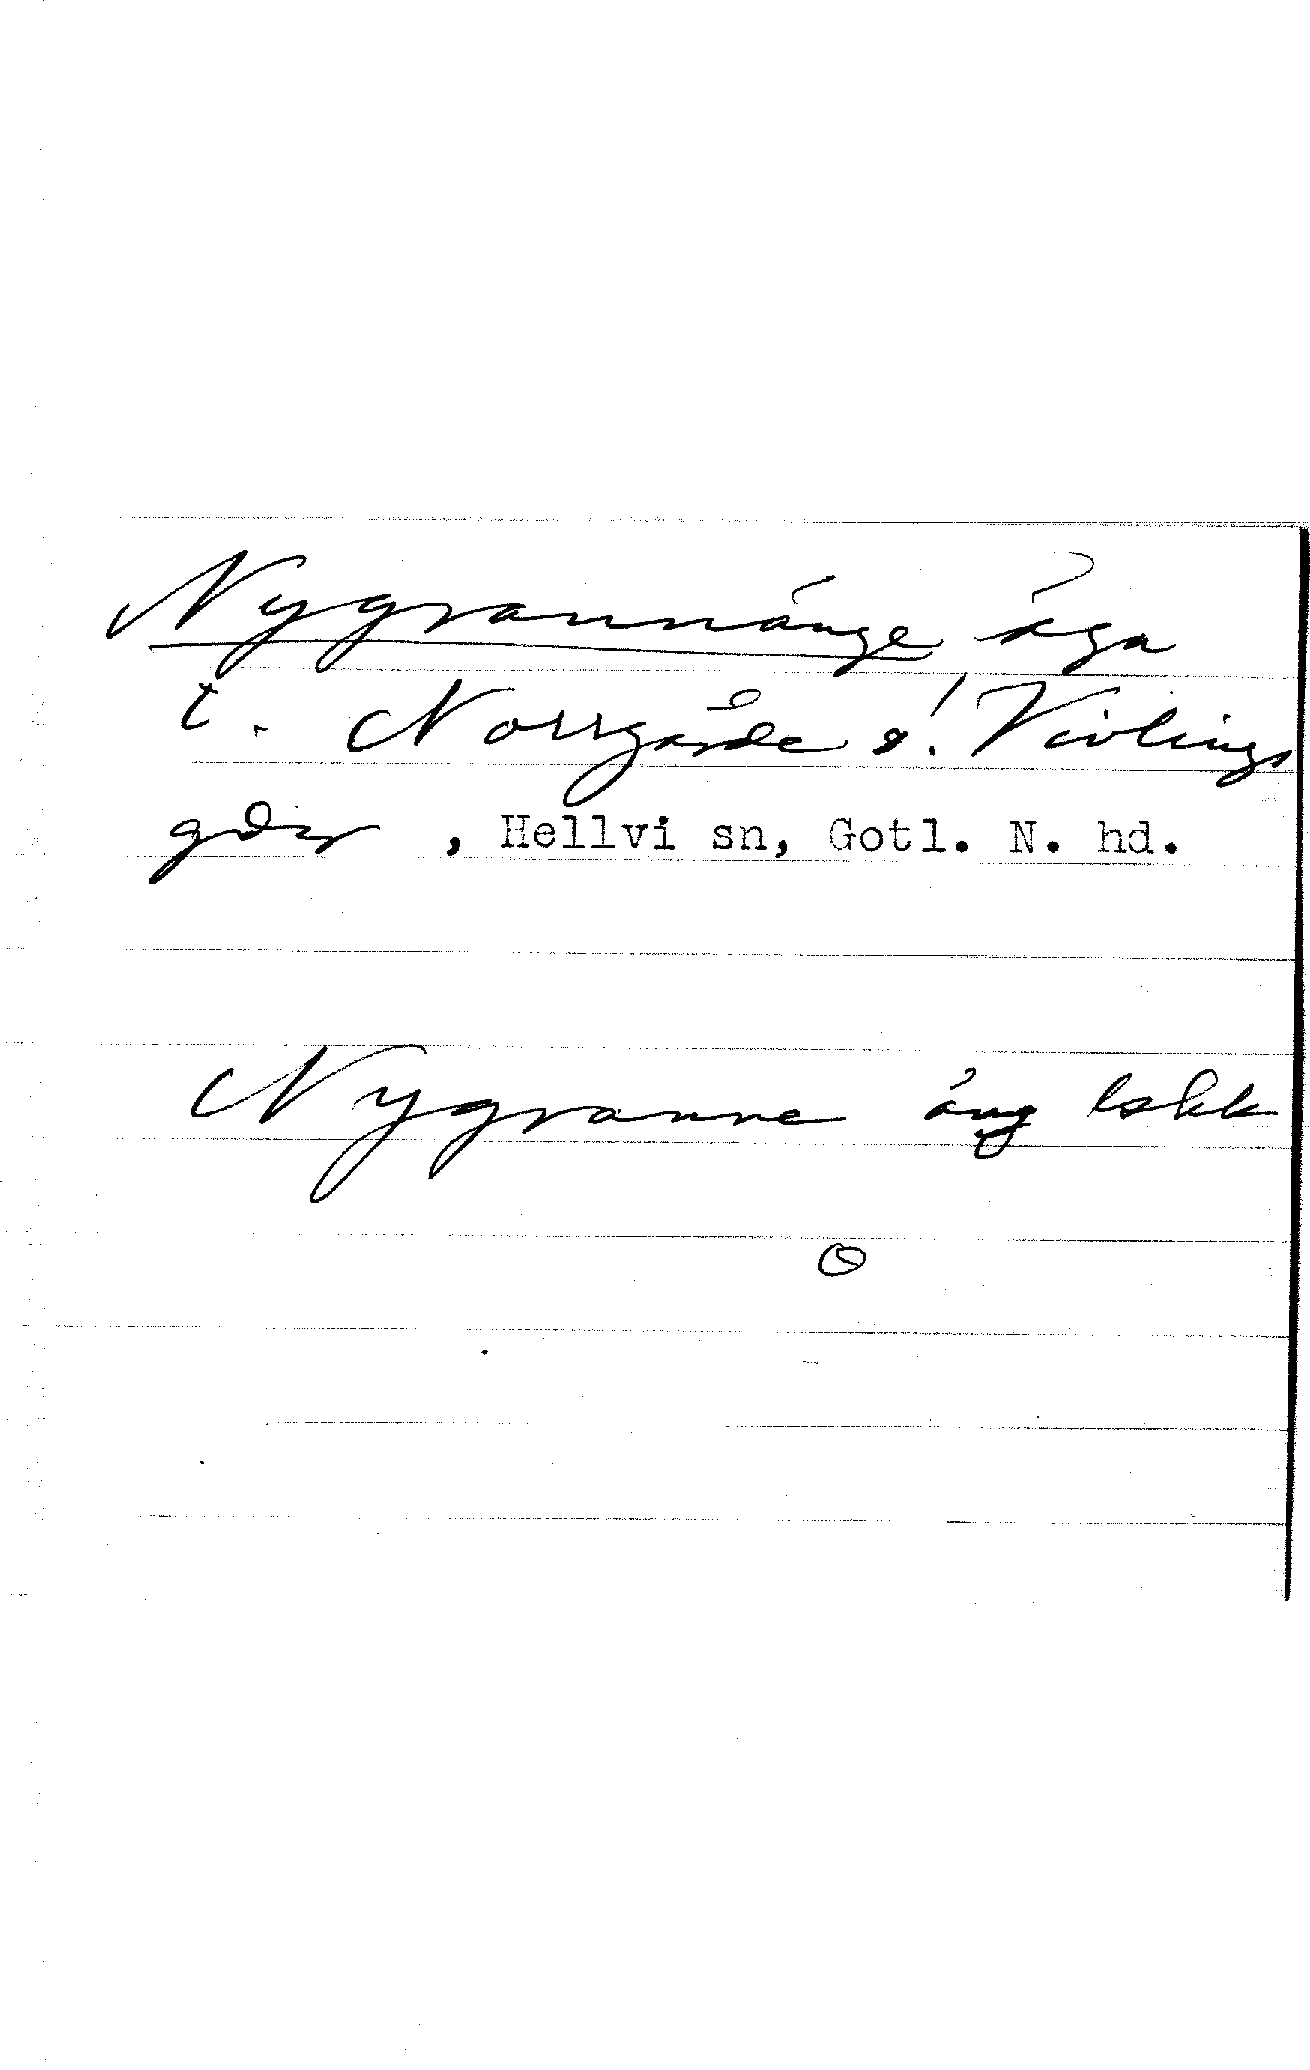 Nygrannänge äga
t. Norrgårde o. Vivlings
gdr, Hellvi sn, Gotl. N. hd.
Nygranne äng Lskk